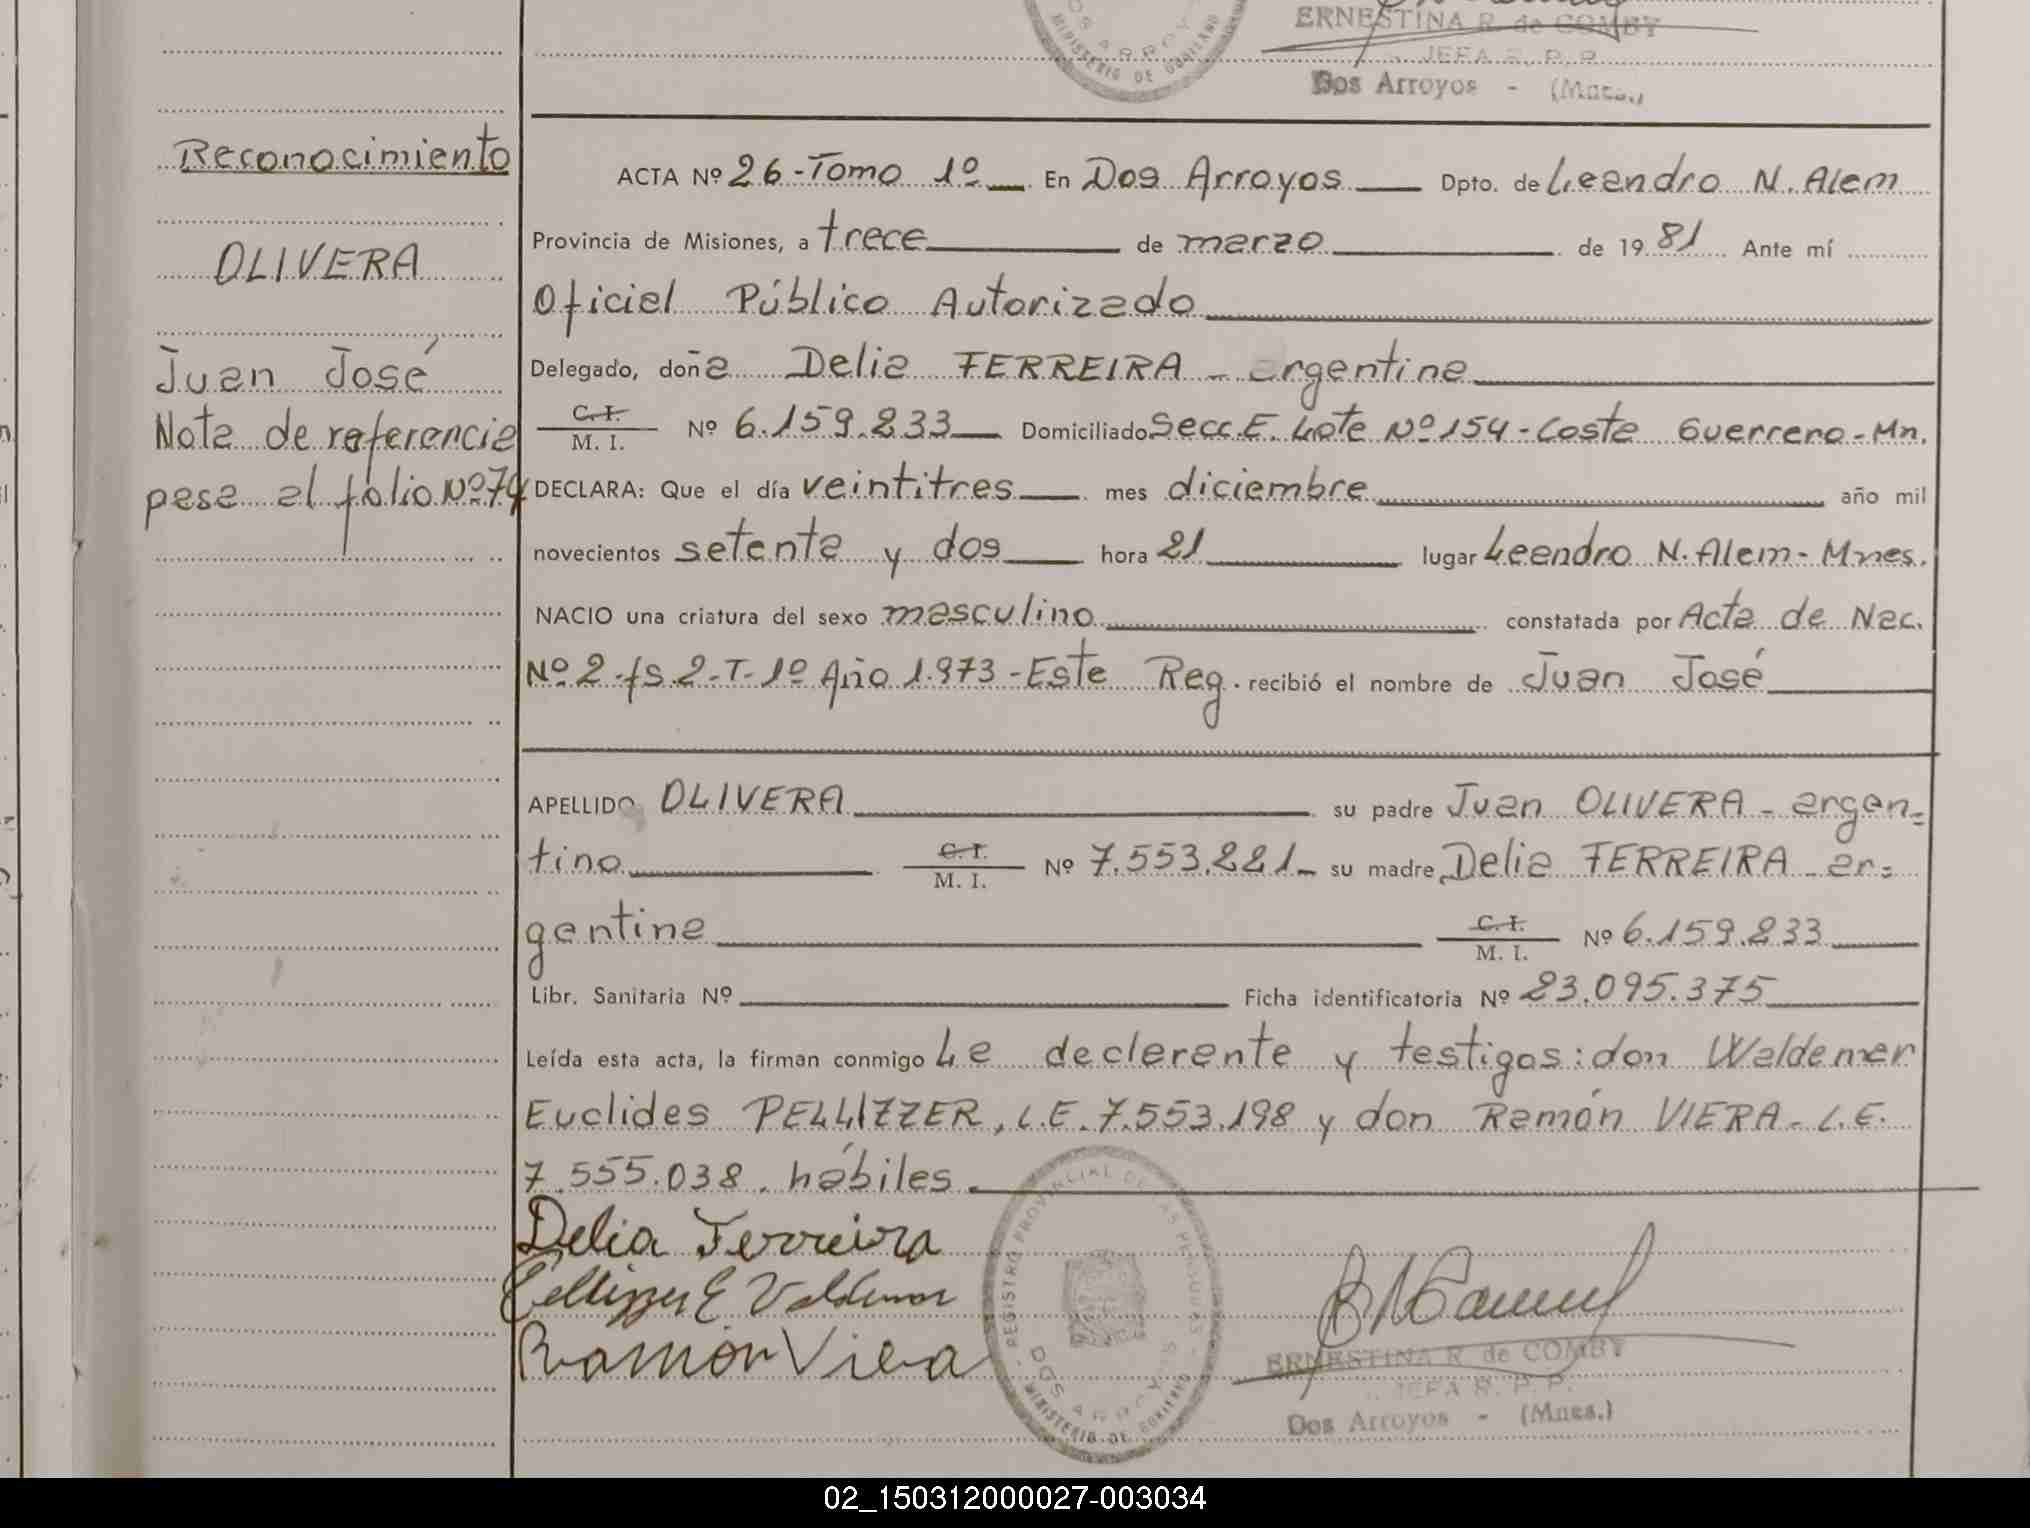 ERNESTINA R. de COMBY
JEFA R. P. P.
Dos Arroyos - (Mnes.)
MINISTERIO DE GOBIERNO
Reconocimiento
OLIVERA
Juan José
Nota de referencia
pasa al folio Nº 79
ACTA Nº 26 - Tomo 1º En Dos Arroyos Dpto. de Leandro N. Alem
Provincia de Misiones, a trece de marzo de 1981 Ante mí
Oficial Público Autorizado
Delegado, doña Delia FERREIRA - argentina
C. I. / M. I. Nº 6.159.233 Domiciliado Secc. E. Lote Nº 154 - Costa Guerrero - Mn.
DECLARA: Que el día veintitres mes diciembre año mil
novecientos setenta y dos hora 21 lugar Leandro N. Alem - Mnes.
NACIO una criatura del sexo masculino constatada por Acta de Nac.
Nº 2 - fs. 2 - T - 1º Año 1.973 - Este Reg. recibió el nombre de Juan José
APELLIDO OLIVERA su padre Juan OLIVERA - argen=
tino C. I. / M. I. Nº 7.553.221 su madre Delia FERREIRA - ar=
gentina C. I. / M. I. Nº 6.159.233
Libr. Sanitaria Nº Ficha identificatoria Nº 23.095.375
Leída esta acta, la firman conmigo La declarante y testigos: don Waldemar
Euclides PELLIZZER, L.E. 7.553.198 y don Ramón VIERA - L.E.
7.555.038. hábiles.
Delia Ferreira
Pellizzer E Valdemar
Ramón Viera
REGISTRO PROVINCIAL DE LAS PERSONAS
DOS ARROYOS
MINISTERIO DE GOBIERNO
ERNESTINA R. de COMBY
JEFA R. P. P.
Dos Arroyos - (Mnes.)
02_150312000027-003034